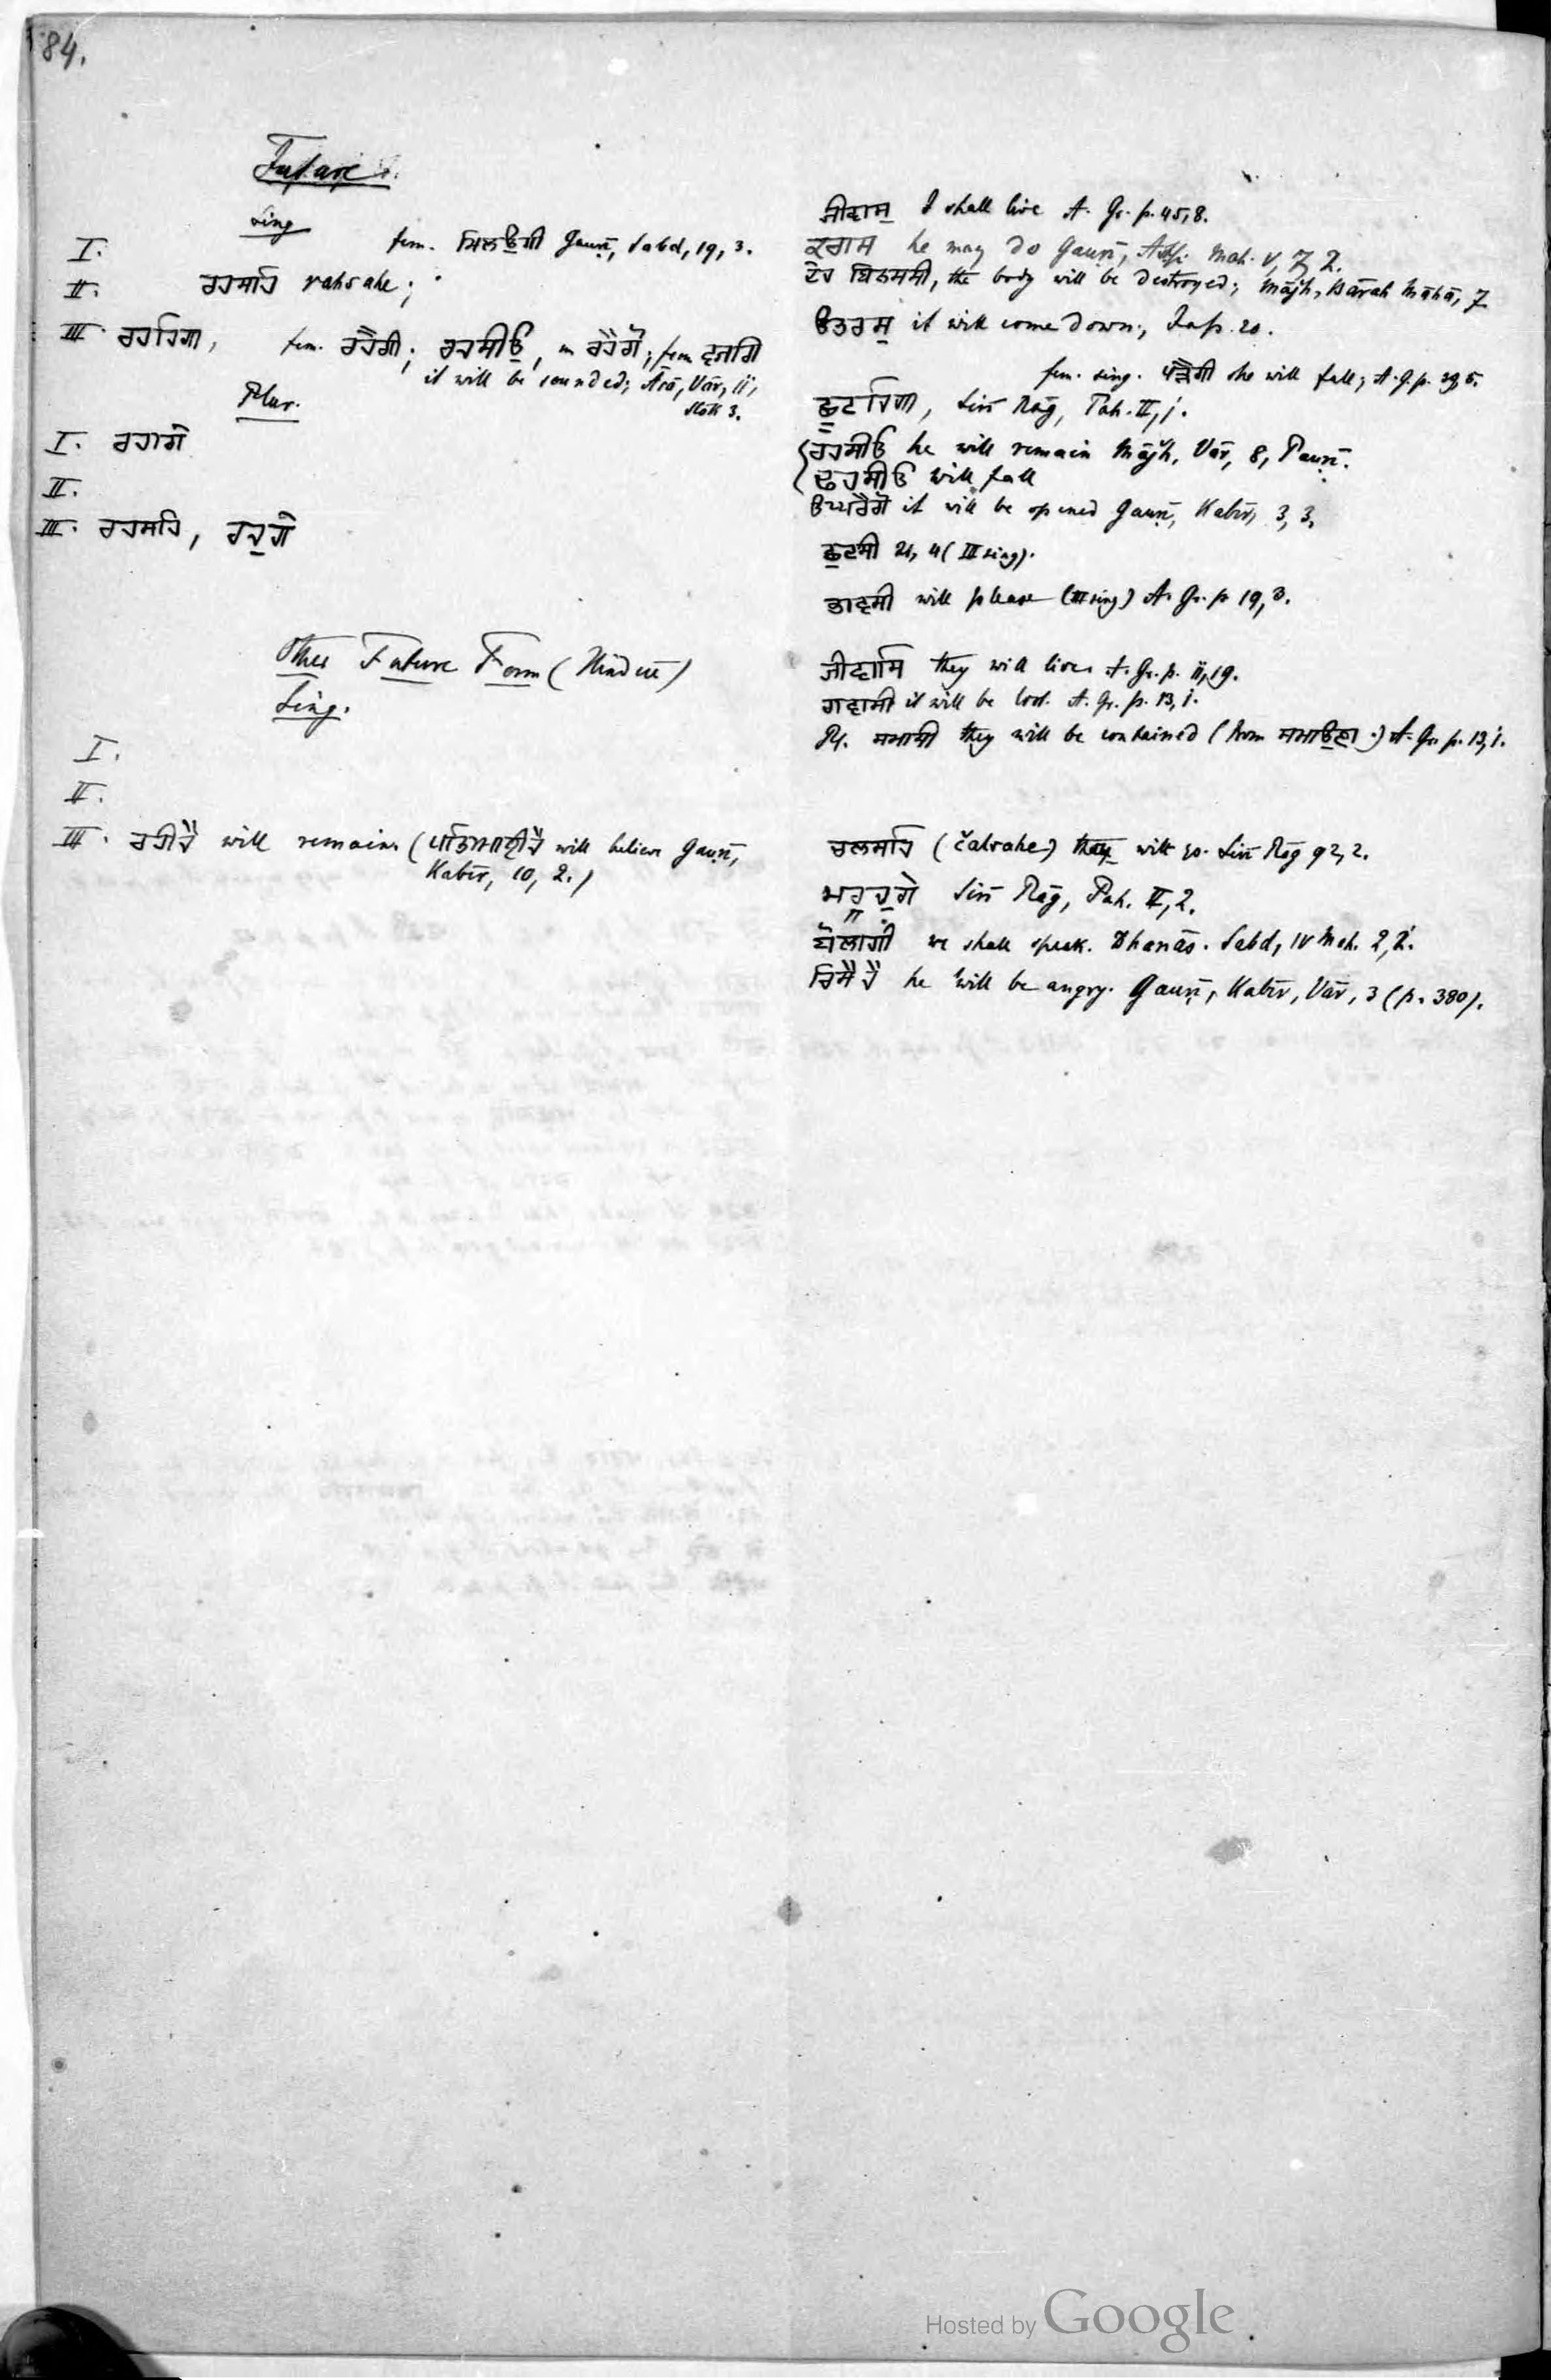 84.
Future.
Sing
I. fem. ਮਿਲਉਗੀ Gauṛī, Sabd, 19, 3.
II. ਰਹਸਹਿ rahsahe;
III. ਰਹਹਿਗਾ, fem. ਰਹੈਗੀ; ਰਹਸੀਉ, m ਰਹੈਗੋ; fem ਵਜਗਿ
it will be sounded; Āsā, Vār, ii,
Slōk 3.
Plur.
I. ਰਹਾਗੇ
II.
III. ਰਹਸਹਿ, ਰਹੁਗੇ
Other Future Form (Hinduī)
Sing.
I.
II.
III. ਰਹੀਹੈ will remain (ਪਤਿਆਹੀਹੈ will believe Gauṛī,
Kabīr, 10, 2.)
ਜੀਵਾਸੁ I shall live A. Gr. p. 45, 8.
ਕਰਾਸ he may do Gauṛī, Moh. V, 7, 2.
ਦੇਹ ਬਿਨਸਸੀ, the body will be destroyed; Mājh, Bārah Māhā, 7
ਉਤਰਸੁ it will come down; Jap. 20.
fem. sing. ਪੜੈਗੀ she will fall; A. G. p. 29, 5.
ਛੁਟਹਿਗਾ, Sirī Rāg, Pah. II, 1.
ਰਹਸੀਉ he will remain Mājh, Vār, 8, Pauṛī.
ਢਹਸੀਉ will fall
ਉਘਰੈਗੋ it will be opened Gauṛī, Kabīr, 3, 3.
ਛੁਟਸੀ 21, 4 (III sing).
ਭਾਵਸੀ will please (III sing) A. Gr. p 19, 3.
ਜੀਵਾਸਿ they will live A. Gr. p. ii, 19.
ਗਵਾਸੀ it will be lost. A. Gr. p. 13, 1.
Pl. ਸਮਾਸੀ they will be contained (from ਸਮਾਉਣਾ.) A. Gr. p. 13, 1.
ਚਲਸਹਿ (čalsahe) they will go. Sirī Rāg 92, 2.
ਮਰਹੁਗੇ Sirī Rāg, Pah. II, 2.
ਬੋਲਾਗੀ we shall speak. Dhanās. Sabd, IV Moh. 2, 2.
ਰਿਸੈਹੈ he will be angry. Gauṛī, Kabīr, Vār, 3 (p. 380).
Hosted by Google